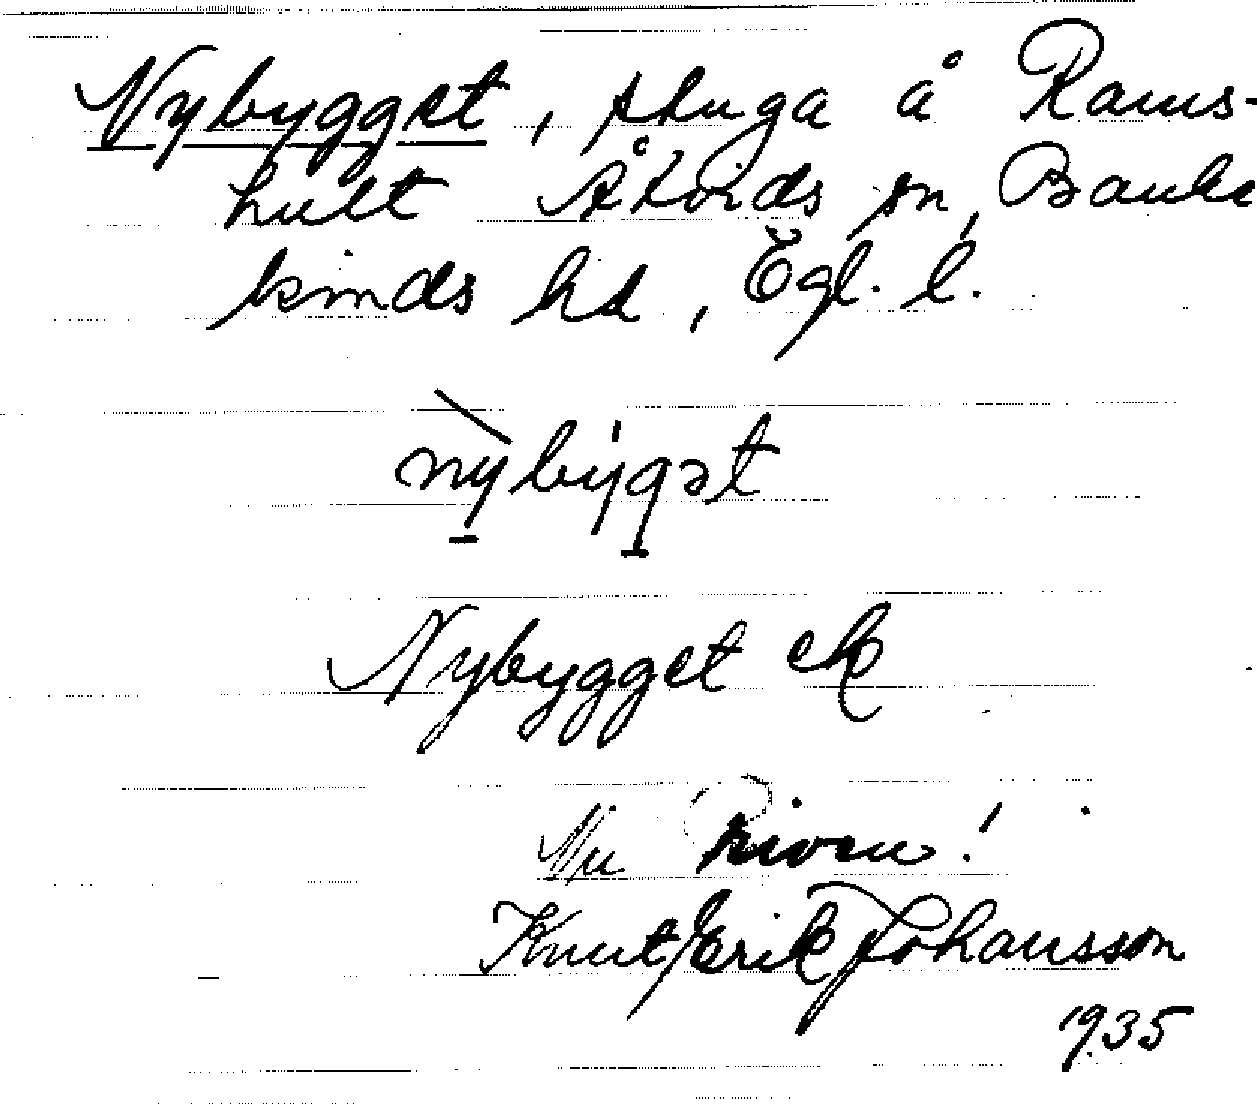 Nybygget, stuga å Rams-
hult Åtvids sn, Banke
kinds hd, Ögl. l.
nybygət
Nybygget ek
Nu riven!
Knut Erik Johansson
1935